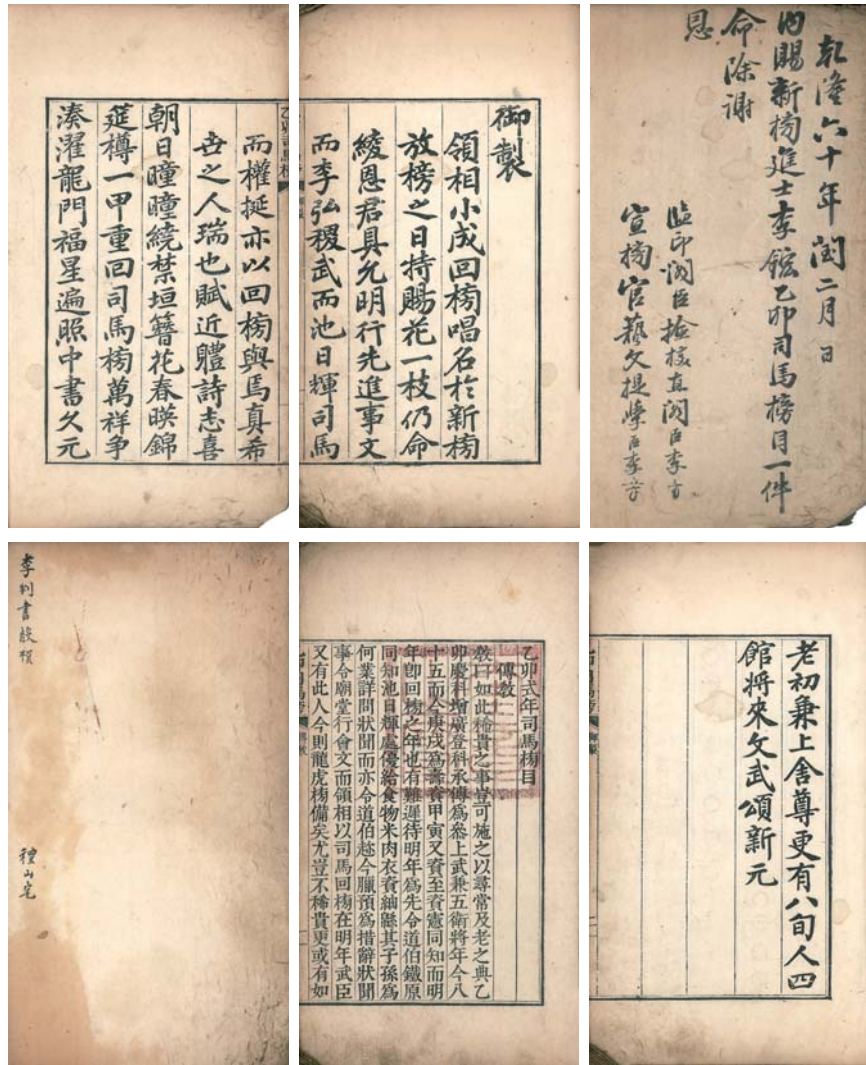 乾隆六十年閏二月 日
內賜新榜進士李鋐乙卯司馬榜目一件
命除謝
恩
監印閣臣檢校直閣臣李
宣榜官藝文提學臣李
御製
領相小成回榜唱名於新榜
放榜之日特賜花一枝仍命
綾恩君具允明行先進事文
而李弘稷武而池日輝司馬
乙卯司馬榜
而權挻亦以回榜與焉真希
世之人瑞也賦近軆詩志喜
朝日曈曈繞禁垣簪花春暎錦
筵樽一甲重回司馬榜萬祥爭
湊濯龍門福星遍照中書久元
老初兼上舍尊更有八旬人四
館將來文武頌新元
乙卯式年司馬榜目
傳教
教曰如此稀貴之事豈可施之以尋常及老之典乙
卯慶科增廣登科承傳爲參上武兼五衛將年今八
十五而今庚戌爲壽資甲寅又資至資憲同知而明
年卽回榜之年也有難遲待明年爲先令道伯鐵原
同知池日輝處優給食物米肉衣資紬緜其子孫爲
何業詳問狀聞而亦令道伯趂今臘預爲措辭狀聞
事令廟堂行會文而領相以司馬回榜在明年武臣
又有此人今則龍虎榜備矣尤豈不稀貴更或有如
李判書
禮山宅